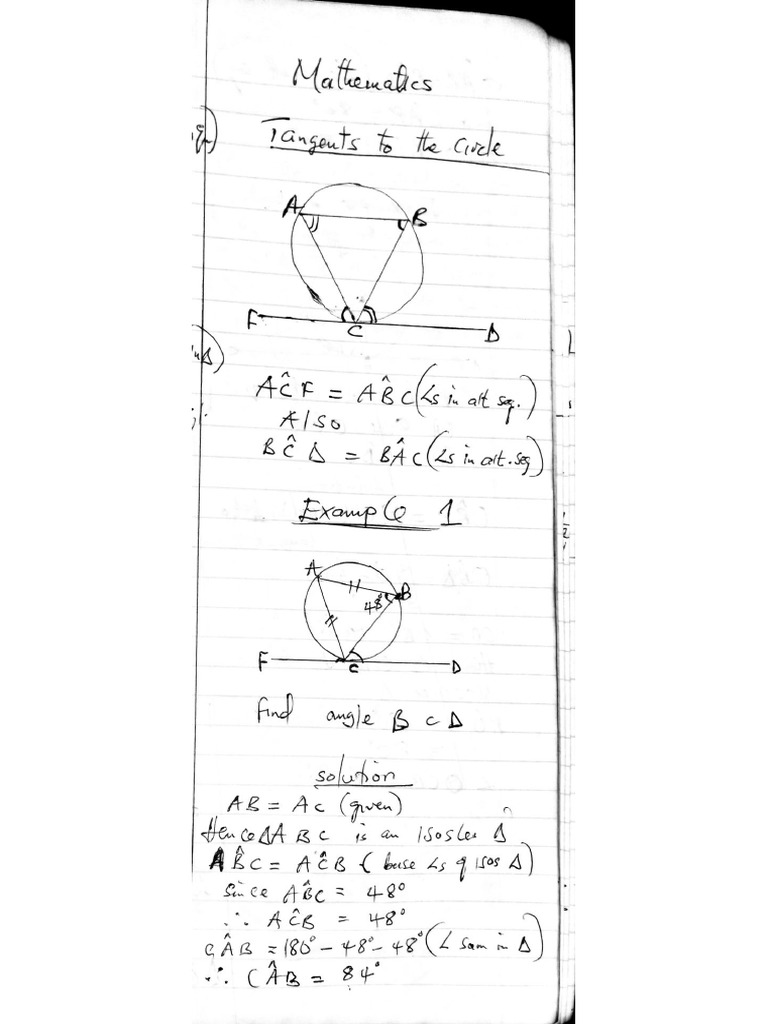 Mathematics
Tangents to the Circle
A
B
F
C
D
AĈF = AB̂C (∠s in alt seg.)
Also
BĈD = BÂC (∠s in alt. seg)
Example 1
A
B
48°
F
C
D
Find angle BCD
solution
AB = AC (given)
Hence ΔABC is an isosles Δ
AB̂C = AĈB (base ∠s of isos Δ)
since AB̂C = 48°
∴ AĈB = 48°
CÂB = 180° - 48° - 48° (∠ sum in Δ)
∴ CÂB = 84°